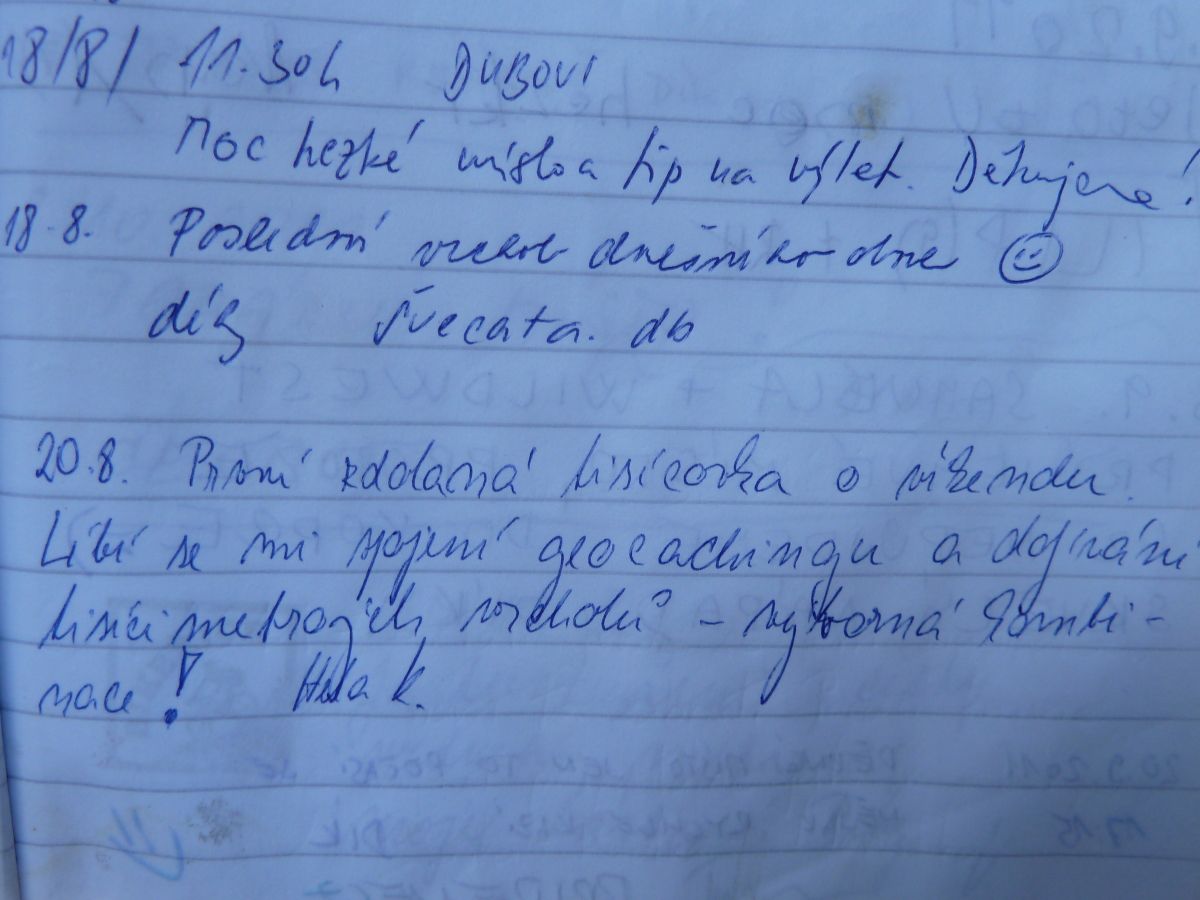 18/8/ 11.30h DUBOVI
Moc hezké místo a tip na výlet. Děkujeme!
18.8. Poslední vrchol dnešního dne ☺
díky Švecata. db
20.8. První zdolaná tisícovka o víkendu.
Líbí se mi spojení geocachingu a dobývání
tisícimetrových vrcholů – výborná kombi-
nace! K.